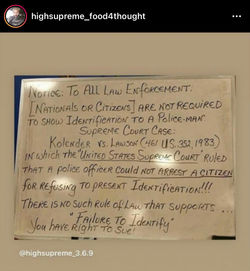 highsupreme_food4thought
NOTICE: TO ALL LAW ENFORCEMENT:
[NATIONALS OR CITIZENS] ARE NOT REQUIRED
TO SHOW IDENTIFICATION TO A POLICE-MAN
SUPREME COURT CASE:
KOLENDER VS. LAWSON (461 US. 352, 1983)
IN WHICH THE "UNITED STATES SUPREME COURT RULED
THAT A POLICE OFFICER COULD NOT ARREST A CITIZEN
FOR REFUSING TO PRESENT IDENTIFICATION!!!
THERE IS NO SUCH RULE OF LAW THAT SUPPORTS ...
"FAILURE TO IDENTIFY"
YOU HAVE RIGHT TO SUE!
@highsupreme_3.6.9